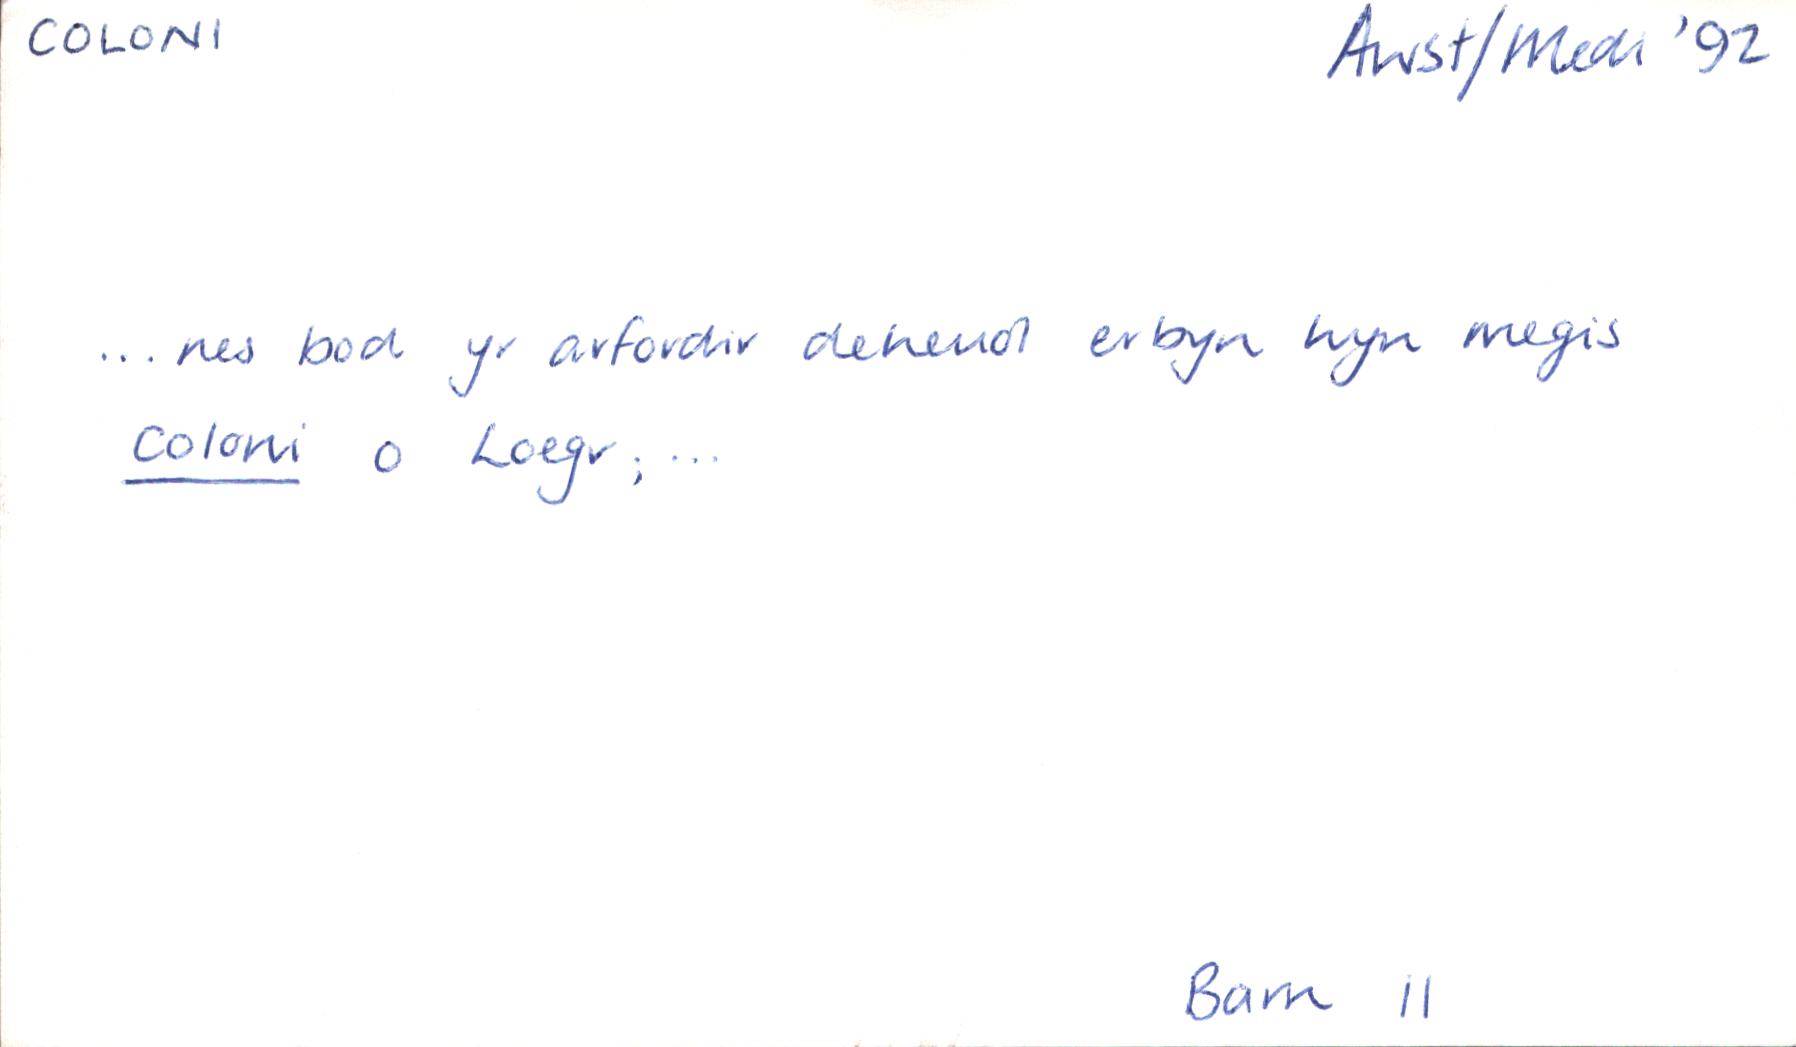 COLONI
Awst/Medi '92
...nes bod yr arfordir deheuol erbyn hyn megis
coloni o Loegr; ...
Barn 11